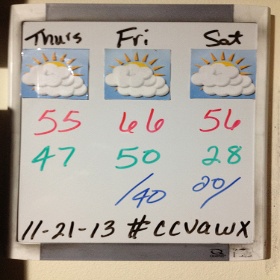 Thurs Fri Sat
55 66 56
47 50 28
/40 20/
11-21-13 #CCVAWX